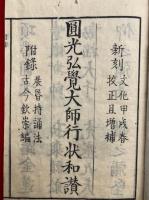 新刻
文化甲戌春
校正且増補
圓光弘覺大師行状和讃
附錄
晨昏持誦法
古今欽崇編